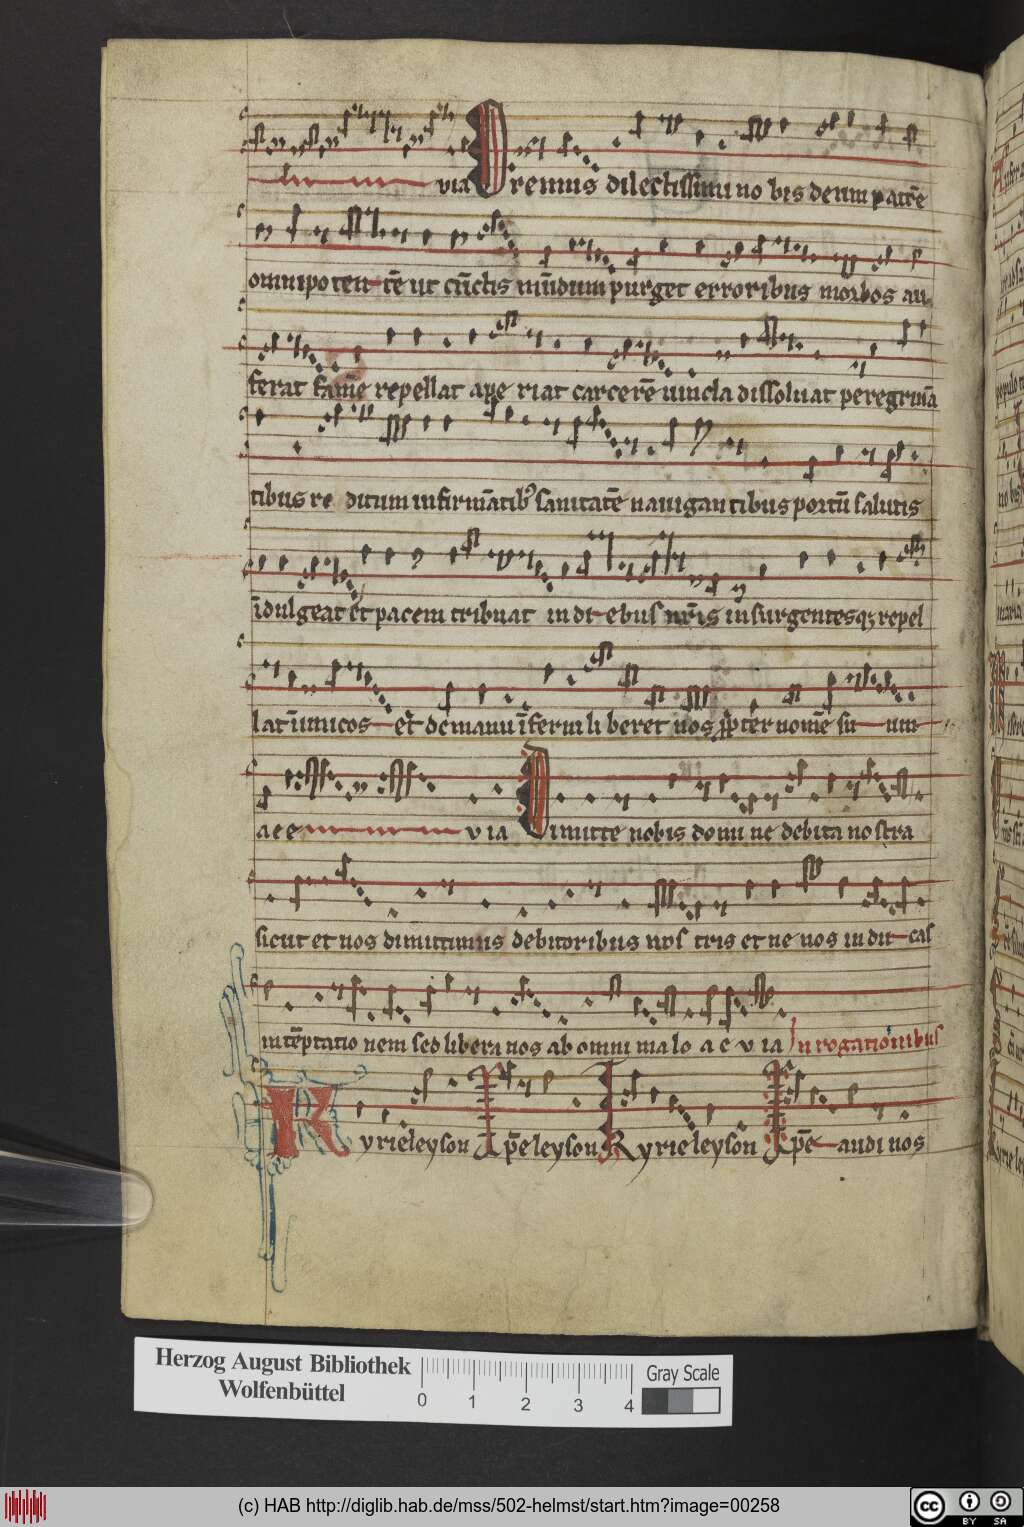 via Oremus dilectissimi no bis deum patrē
omnipoten tē ut cūctis mūdum purget erroribus morbos au
ferat famē repellat ape riat carcerē uincla dissoluat peregrinā
tibus re ditum infirmātibꝰ sanitatē nauigan tibus portū salutis
īdulgeat et pacem tribuat in di ebus nr̄is insurgentesqꝫ repel
lat īimicos et de manu īferni li beret nos ꝓpter nomē su um
a e e v i a Dimitte nobis domi ne debita nostra
sicut et nos dimittimus debitoribus nos tris et ne nos in du cas
in tēptatio nem sed libera nos ab omni malo a e v ia In rogationibus
Kyrieleyson Xp̄e leyson Kyrieleyson Xp̄e audi nos
Herzog August Bibliothek
Wolfenbüttel
0 1 2 3 4
Gray Scale
(c) HAB http://diglib.hab.de/mss/502-helmst/start.htm?image=00258
cc BY SA